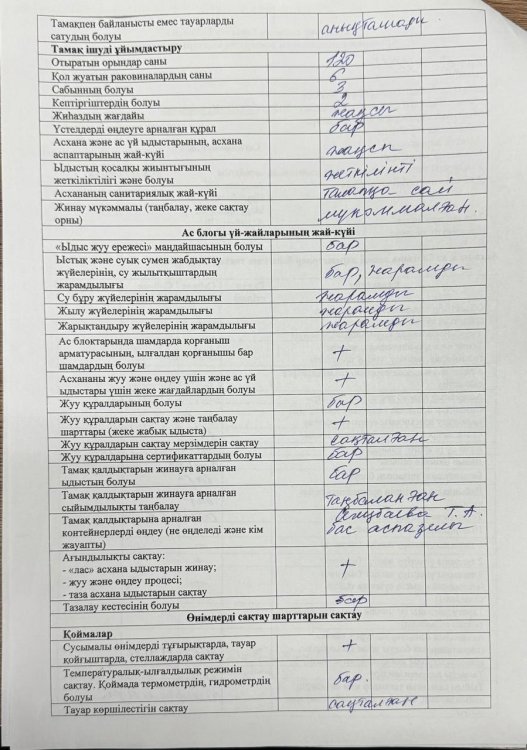 Тамақпен байланысты емес тауарларды
сатудың болуы
Тамақ ішуді ұйымдастыру
Отыратын орындар саны 120
Қол жуатын раковиналардың саны 6
Сабынның болуы 3
Кептіргіштердің болуы 2
Жиһаздың жағдайы жақсы
Үстелдерді өңдеуге арналған құрал бар
Асхана және ас үй ыдыстарының, асхана
аспаптарының жай-күйі жақсы
Ыдыстың қосалқы жиынтығының
жеткіліктілігі және болуы жеткілікті
Асхананың санитариялық жай-күйі талапқа сай
Жинау мүкәммалы (таңбалау, жеке сақтау
орны)
Ас блогы үй-жайларының жай-күйі
«Ыдыс жуу ережесі» маңдайшасының болуы бар
Ыстық және суық сумен жабдықтау
жүйелерінің, су жылытқыштардың
жарамдылығы бар, жарамды
Су бұру жүйелерінің жарамдылығы жарамды
Жылу жүйелерінің жарамдылығы жарамды
Жарықтандыру жүйелерінің жарамдылығы жарамды
Ас блоктарында шамдарда корғаныш
арматурасының, ылғалдан корғанышы бар
шамдардың болуы +
Асхананы жуу және өңдеу үшін және ас үй
ыдыстары үшін жеке жағдайлардың болуы +
Жуу құралдарының болуы бар
Жуу құралдарын сақтау және таңбалау
шарттары (жеке жабық ыдыста) +
Жуу құралдарын сақтау мерзімдерін сақтау сақталған
Жуу құралдарына сертификаттардың болуы бар
Тамақ қалдықтарын жинауға арналған
ыдыстың болуы бар
Тамақ қалдықтарын жинауға арналған
сыйымдылықты таңбалау таңбаланған
Тамақ қалдықтарына арналған
контейнерлерді өңдеу (не өңделеді және кім
жауапты) Т. А. бас аспазшы
Ағындылықты сақтау:
- «лас» асхана ыдыстарын жинау;
- жуу және өңдеу процесі; +
- таза асхана ыдыстарын сақтау
Тазалау кестесінің болуы бар
Өнімдерді сақтау шарттарын сақтау
Қоймалар
Сусымалы өнімдерді тұғырықтарда, тауар
қойғыштарда, стеллаждарда сақтау +
Температуралық-ылғалдылық режимін
сақтау. Қоймада термометрдің, гидрометрдің
болуы бар.
Тауар көршілестігін сақтау сақталған